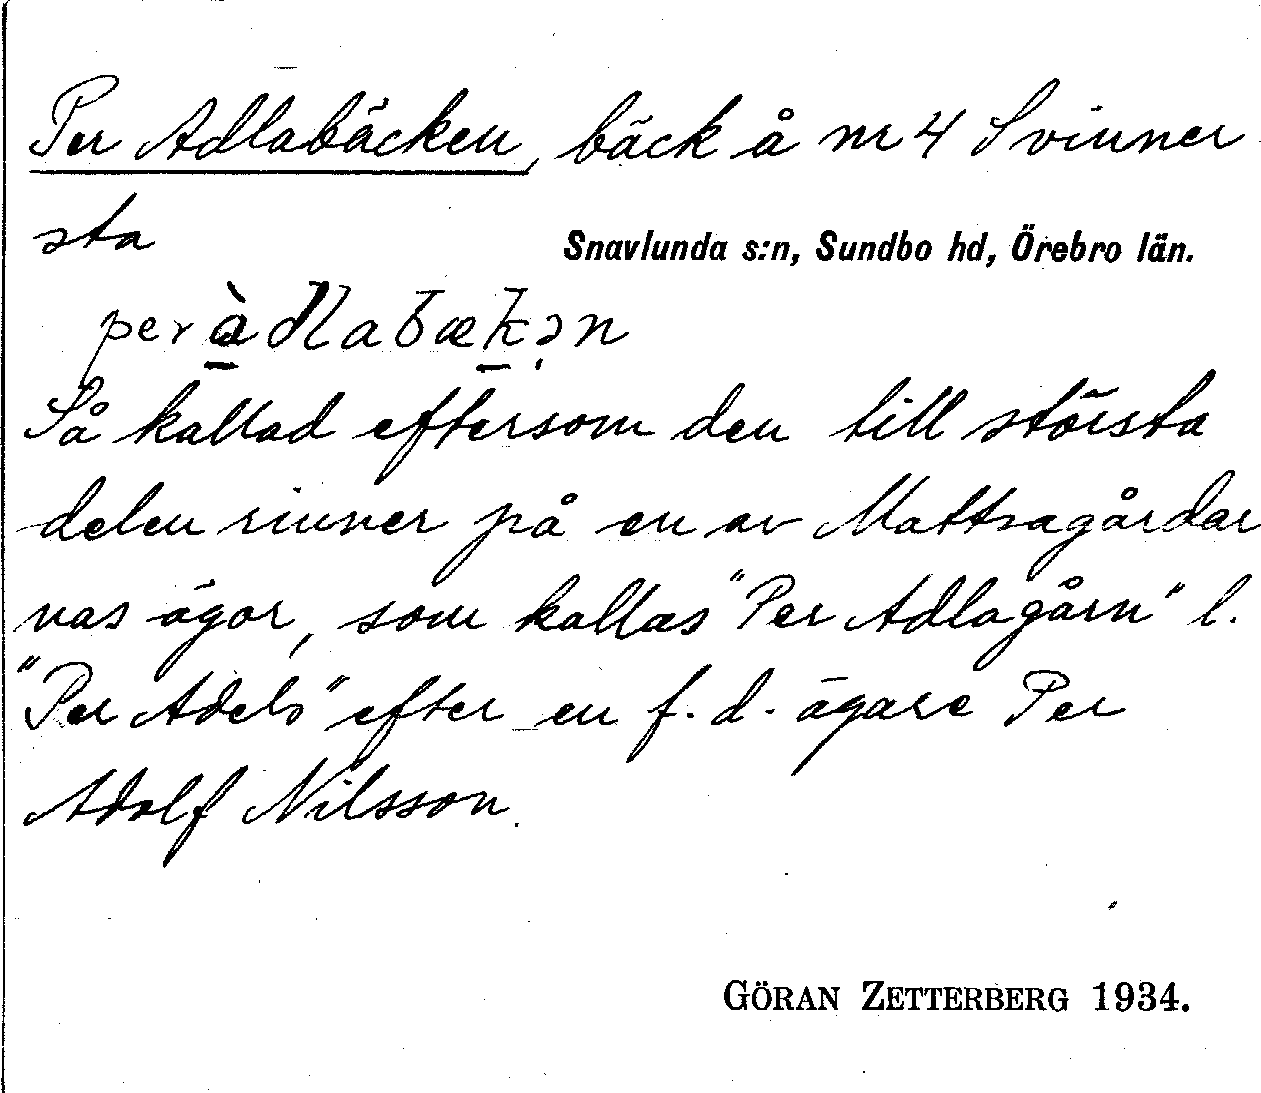 Per Adlabäcken, bäck å nr 4 Svinner
sta
Snavlunda s:n, Sundbo hd, Örebro län.
per àdlabækən
Så kallad eftersom den till största
delen rinner på en av Mattsagårdar
nas ägor, som kallas "Per Adlagårn" l.
"Per Adels" efter en f. d. ägare Per
Adolf Nilsson.
GÖRAN ZETTERBERG 1934.